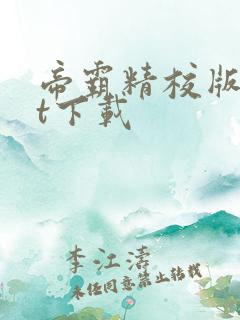 帝霸精校版
t下载
李江涛
未经同意禁止转载